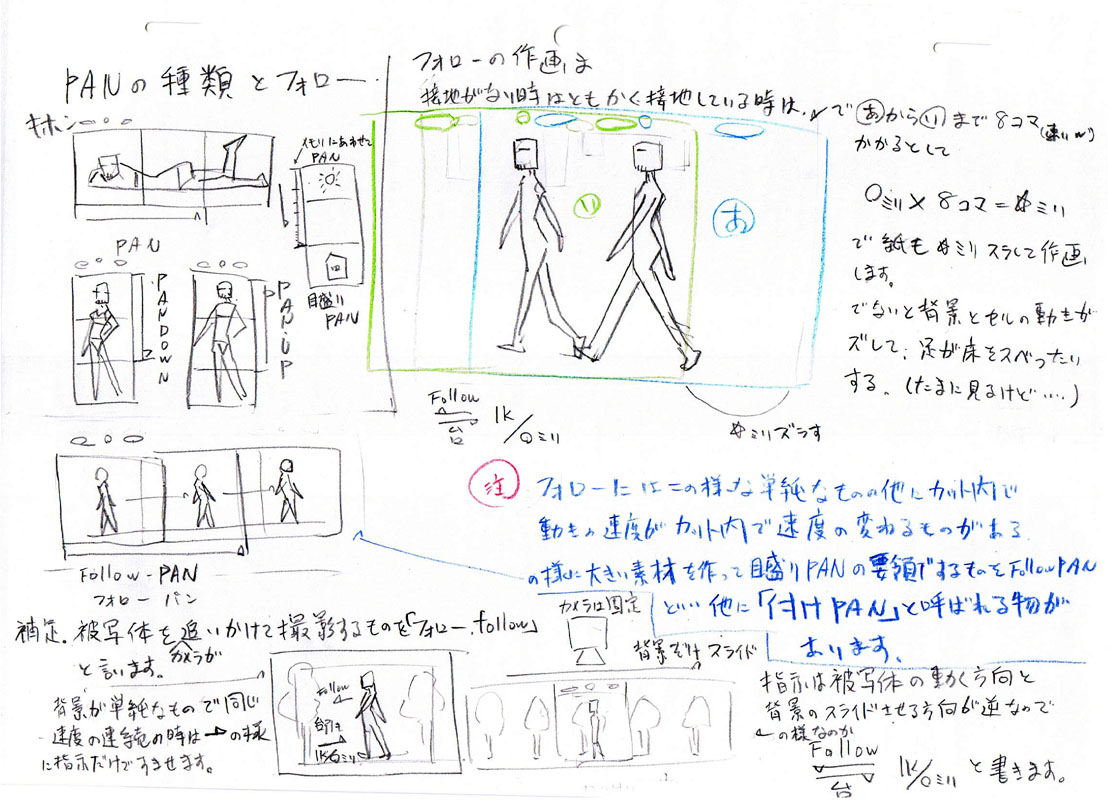 PANの種類とフォロー
キホン
メモリにあわせて
PAN
PAN
PAN DOWN
PAN・UP
目盛り
PAN
Follow-PAN
フォロー パン
フォローの作画は
接地がない時はともかく接地している時は、
で あからいまで8コマ(速いw)
かかるとして
○ミリ×8コマ=☆ミリ
で紙も☆ミリスラして作画
します。
でないと背景とセルの動きが
ズレて、足が床をスベったり
する。(たまに見るけど・・・・)
い
あ
Follow
台
1K/○ミリ
☆ミリズラす
注
フォローにはこの様な単純なものの他にカット内で
動きの速度がカット内で速度の変わるものがある
の様に大きい素材を作って目盛りPANの要領でするものをFollowPAN
といい他に「付けPAN」と呼ばれる物が
あります。
補足.被写体を追いかけて撮影するものを「フォロー.follow」
カメラが
と言います。
背景が単純なもので同じ
速度の連続の時は→の様
に指示だけですませます。
Follow
台引き
1K/○ミリ
カメラは固定
背景だけスライド
指示は被写体の動く方向と
背景のスライドさせる方向が逆なので
の様なのが
Follow
台
1K/○ミリ と書きます。